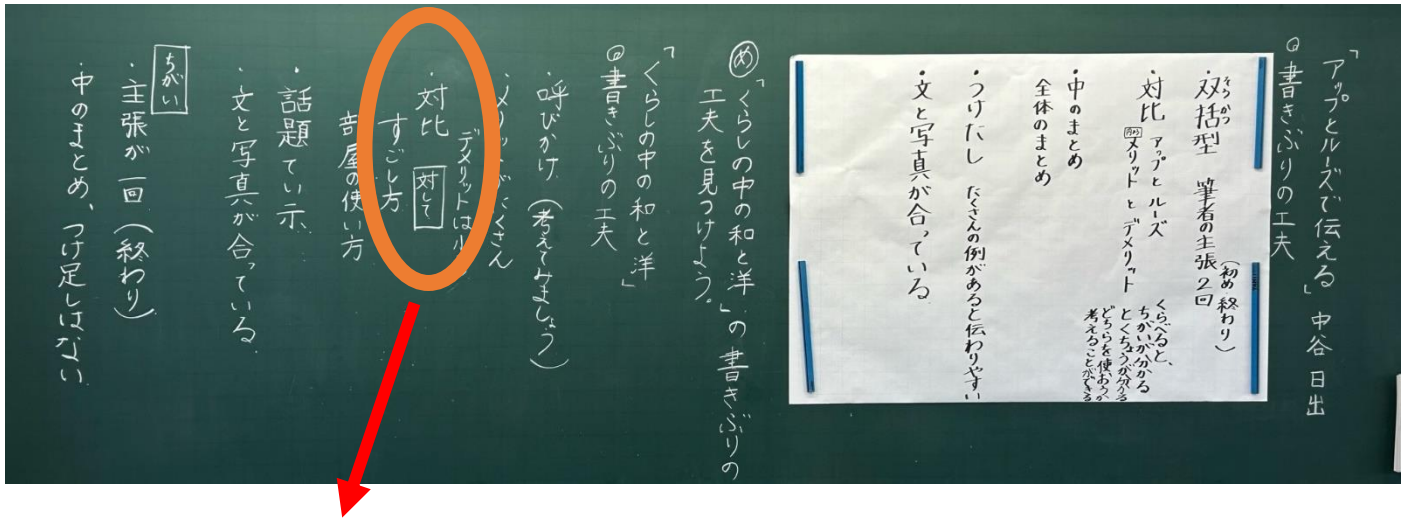 「アップとルーズで伝える」中谷 日出
◎書きぶりの工夫
・双括型 筆者の主張2回(初め 終わり)
そうかつ
・対比 アップとルーズ
メリットとデメリット
くらべると、
ちがいが分かる
とくちょうが分かる
どちらを使おうか
考えることができる
・中のまとめ
全体のまとめ
・つけたし たくさんの例があると伝わりやすい
・文と写真が合っている
め 「くらしの中の和と洋」の書きぶりの
工夫を見つけよう。
「くらしの中の和と洋」
◎書きぶりの工夫
・呼びかけ(考えてみましょう)
・メリットがたくさん
デメリットは少
・対比 対して
すごし方
部屋の使い方
・話題てい示
・文と写真が合っている
ちがい
・主張が一回(終わり)
・中のまとめ、つけ足しはない